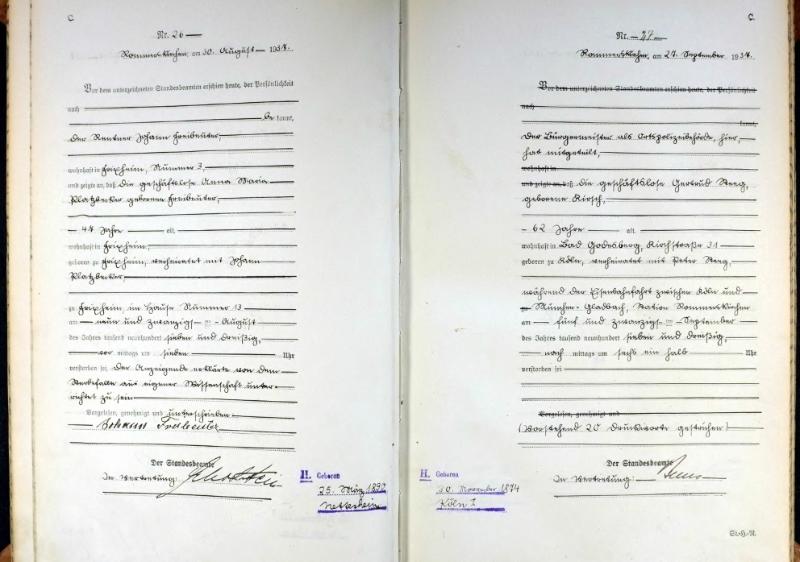 C.
Nr. 26
Rommerskirchen, am 30. August 1937.
Vor dem unterzeichneten Standesbeamten erschien heute, der Persönlichkeit
nach
be kannt,
der Rentner Johann Freibeuter,
wohnhaft in Frixheim, Nummer 3,
und zeigte an, daß die geschäftslose Anna Maria
Platzbecker geborene Freibeuter,
- 44 Jahre alt,
wohnhaft in Frixheim,
geboren zu Frixheim, verheiratet mit Johann
Platzbecker,
zu Frixheim im Hause Nummer 13
am neun und zwanzigs ten August
des Jahres tausend neunhundert sieben und dreißig,
vor mittags um sieben Uhr
verstorben sei. Der Anzeigende erklärte von dem
Sterbefalle aus eigener Wissenschaft unter-
richtet zu sein
Vorgelesen, genehmigt und unterschrieben
Johann Freibeuter
Der Standesbeamte
In Vertretung:
H. Geboren
25. März 1892
C.
Nr. 27
Rommerskirchen, am 27. September 1937.
Vor dem unterzeichneten Standesbeamten erschien heute, der Persönlichkeit
nach
kannt,
Der Bürgermeister als Ortspolizeibehörde, hier,
hat mitgeteilt,
wohnhaft in
und zeigte an, daß die geschäftslose Gertrud Steeg,
geborene Kirsch,
- 62 Jahre alt,
wohnhaft in Bad Godesberg, Kirchstraße 31
geboren zu Köln, verheiratet mit Peter Steeg,
während der Eisenbahnfahrt zwischen Köln und
München-Gladbach, Station Rommerskirchen
am fünf und zwanzigs ten September
des Jahres tausend neunhundert sieben und dreißig,
nach mittags um sechs ein halb Uhr
verstorben sei
Vorgelesen, genehmigt und
(Vorstehend 20 Druckworte gestrichen)
Der Standesbeamte
In Vertretung:
H. Geboren
30. November 1874
Köln I
St.-H.-N.